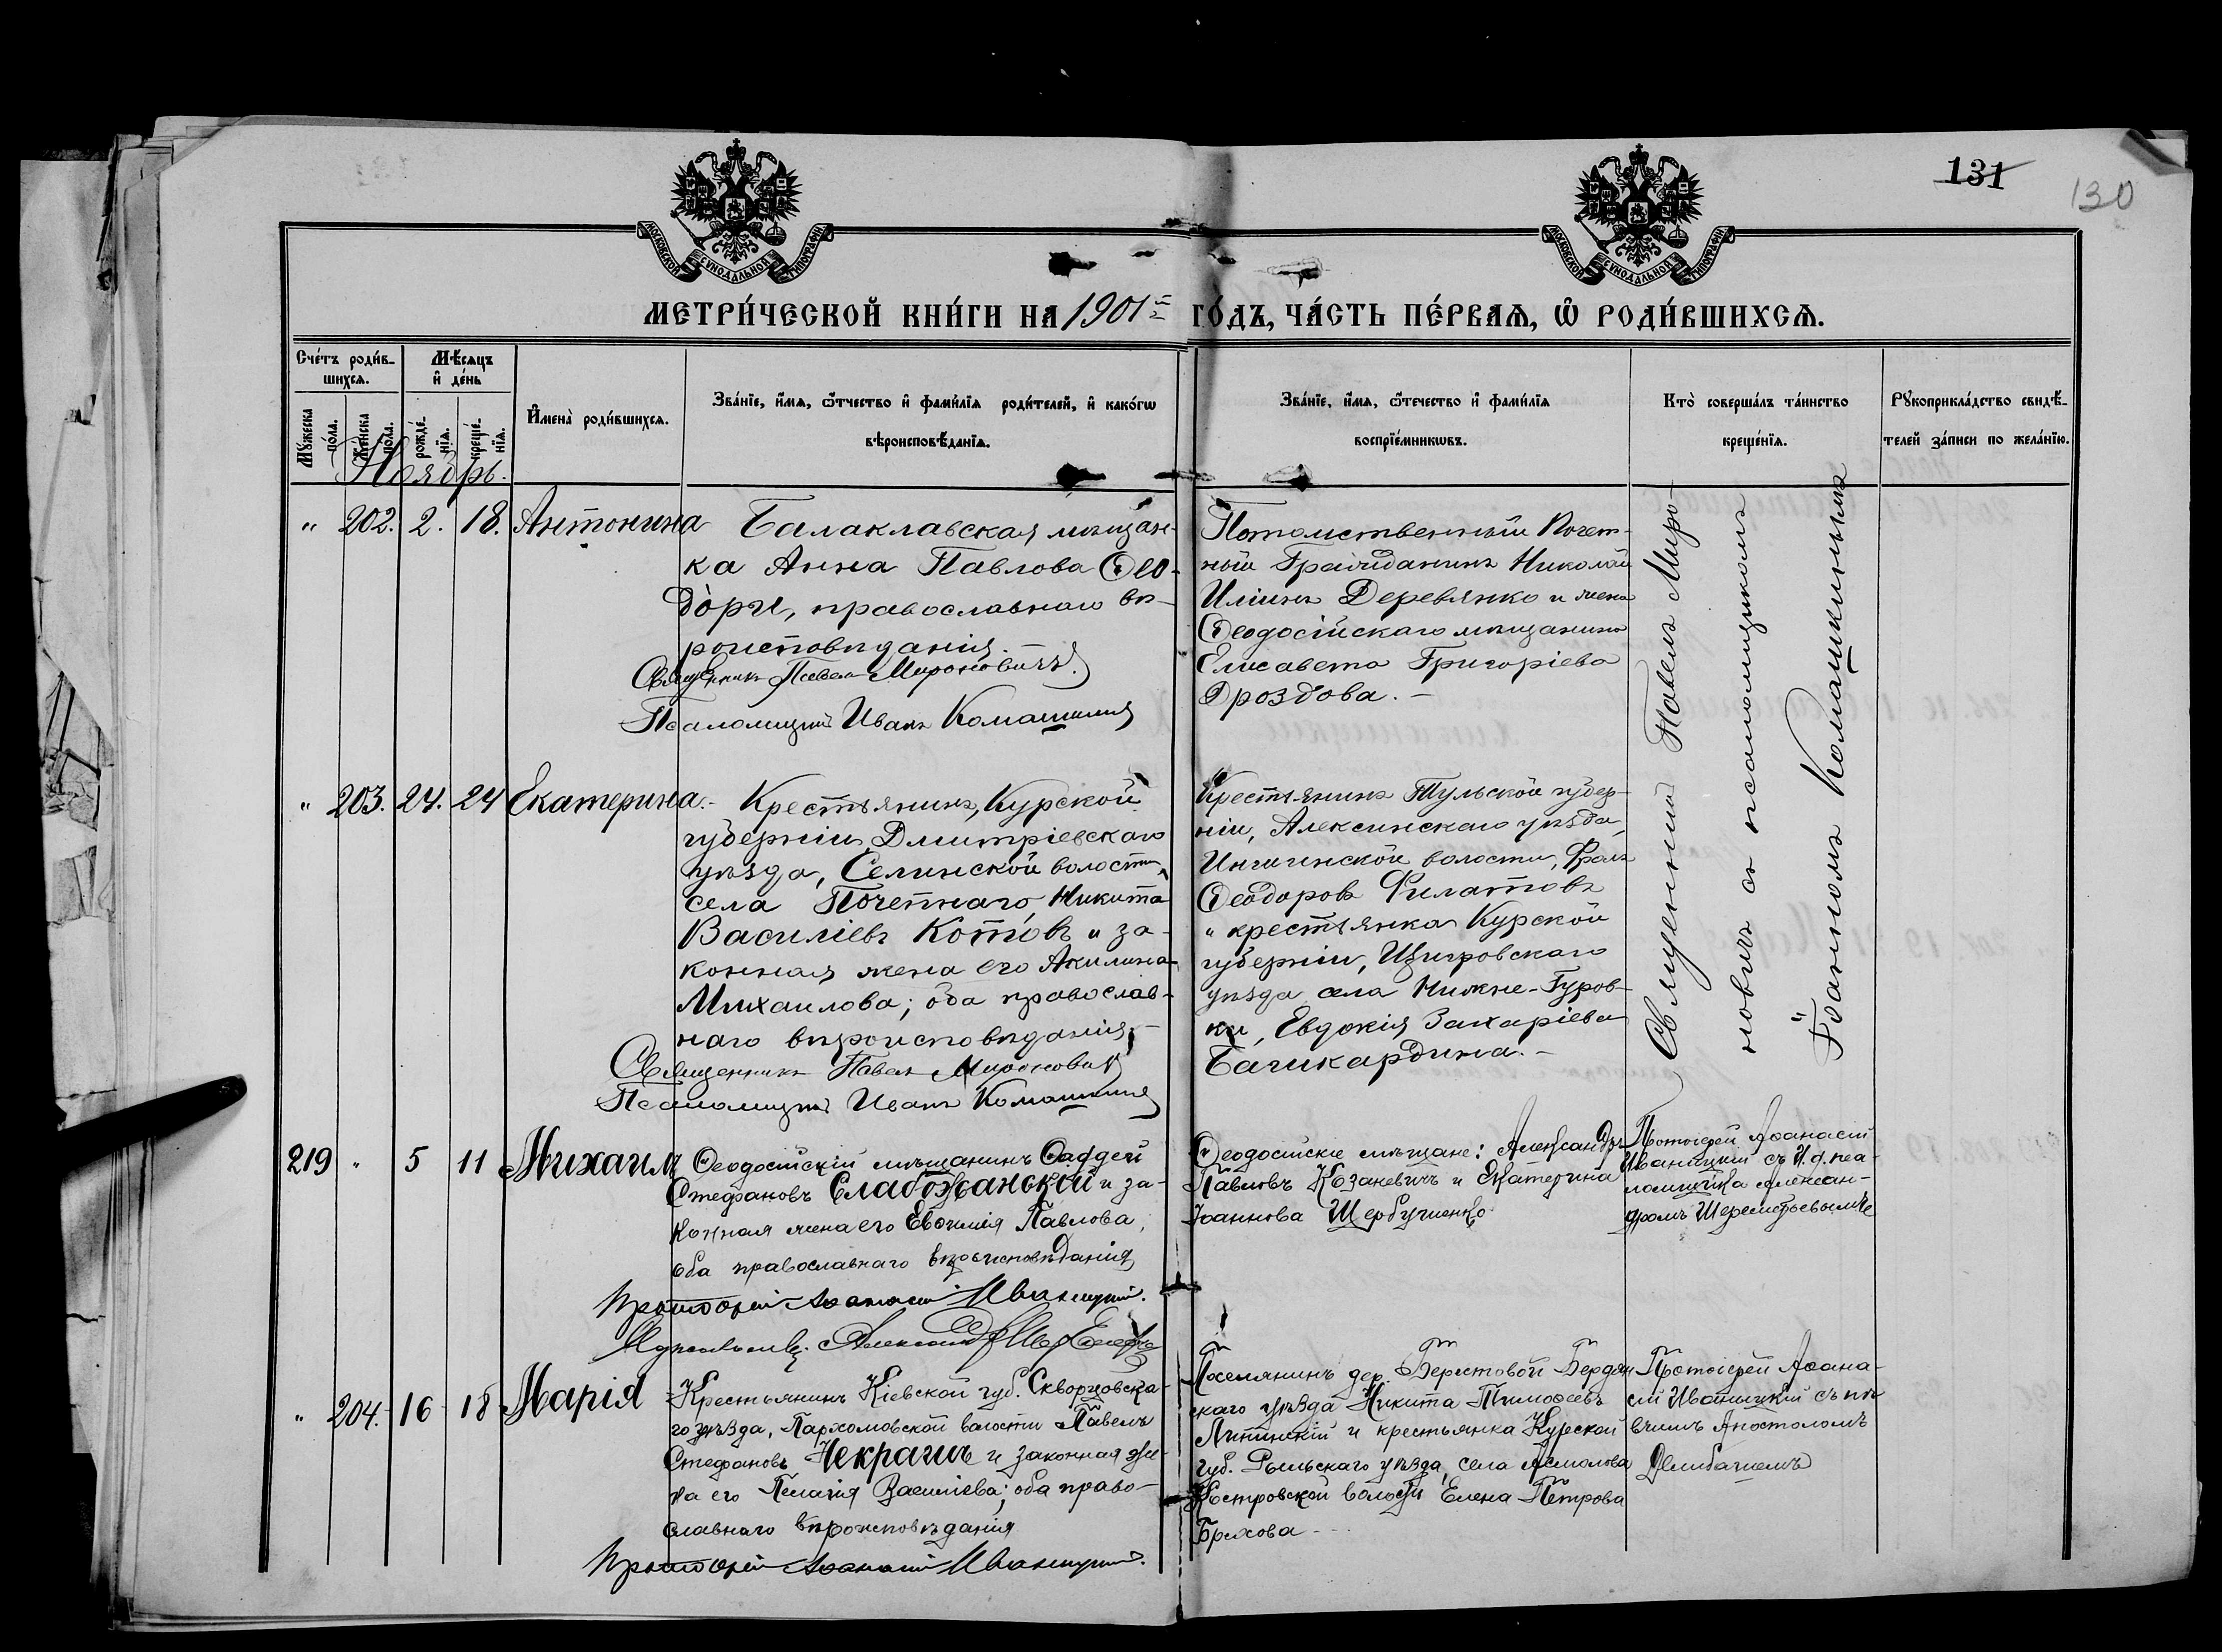 131
130
МОСКОВСКОЙ СѴНОДАЛЬНОЙ ТИПОГРАФІИ
МОСКОВСКОЙ СѴНОДАЛЬНОЙ ТИПОГРАФІИ
МЕТРИ́ЧЕСКОЙ КНИ́ГИ НА 1901 ГО́ДЪ, ЧА́СТЬ ПЕ́РВАѦ, Ѡ҆ РОДИ́ВШИХСѦ.
Сче́тъ роди́в-
шихсѧ.
Мѣ́сѧцъ
и҆ де́нь
Мꙋ́жеска по́ла.
Же́нска по́ла.
рожде́-
нїѧ.
креще́-
нїѧ.
И҆мена̀ роди́вшихсѧ.
Зва́нїе, и҆́мѧ, ѻ҆́тчество и҆ фами́лїѧ роди́телей, и҆ како́гѡ
вѣроисповѣ́данїѧ.
Зва́нїе, и҆́мѧ, ѻ҆те́чество и҆ фами́лїѧ
воспрїе́мникѡвъ.
Кто̀ соверша́лъ та́инство
креще́нїѧ.
Рꙋкоприкла́дство свидѣ́-
телей за́писи по жела́нїю.
Ноябрь.
" 202. 2. 18. Антонина
Балаклавская мѣщан-
ка Анна Павлова Ѳео-
дори, православнаго вѣ-
роисповѣданія.
Священникъ Павелъ Мироновичъ
Псаломщикъ Иванъ Комашкинъ
Потомственный Почет-
ный Гражданинъ Николай
Иліинъ Деревянко и жена
Ѳеодосійскаго мѣщанина
Елисавета Григоріева
Дроздова. –
Священникъ Павелъ Миро-
новичъ съ псаломщикомъ
Іоанномъ Комашкинымъ
" 203. 24. 24 Екатерина. –
Крестьянинъ, Курской
губерніи, Дмитріевскаго
уѣзда, Селинской волости,
села Почепнаго Никита
Василіевъ Котовъ и за-
конная жена его Акилина
Михаилова; оба православ-
наго вѣроисповѣданія, –
Священникъ Павелъ Мироновичъ
Псаломщикъ Иванъ Комашкинъ
Крестьянинъ Тульской губер-
ніи, Алексинскаго уѣзда,
волости,
Ѳеодоровъ Филатовъ
и крестьянка Курской
губерніи, Щигровскаго
уѣзда села Нижне-Гуров-
ки, Евдокія Захаріева
Багикардина. –
219 " 5 11 Михаилъ
Ѳеодосійскій мѣщанинъ Ѳаддей
Стефановъ Слабожанской и за-
конная жена его Евѳимія Павлова,
оба православнаго вѣроисповѣданія
Протоіерей Аѳанасій Иваницкій.
Ѳеодосійскіе мѣщане: Александръ
Павловъ Козакевичъ и Екатерина
Іоаннова Щербученко
Протоіерей Аѳанасій
Иваницкій съ И. д. пса-
ломщика Алексан-
дромъ Шереметьевымъ
" 204. 16 18 Марія
Крестьянинъ Кіевской губ. Скворцовска-
го уѣзда, Пархомовской волости Павелъ
Стефановъ Некрашъ и законная же-
на его Пелагія Василіева; оба право-
славнаго вѣроисповѣданія
Протоіерей Аѳанасій Иваницкій.
Поселянинъ дер. Берестовой Бердян-
скаго уѣзда Никита Тимоѳеевъ
Липинскій и крестьянка Курской
губ. Рыльскаго уѣзда, села Асмолова
Костровской волости Елена Петрова
Брехова - - -
Протоіерей Аѳана-
сій Иваницкій съ пѣ-
вчимъ Апостоломъ